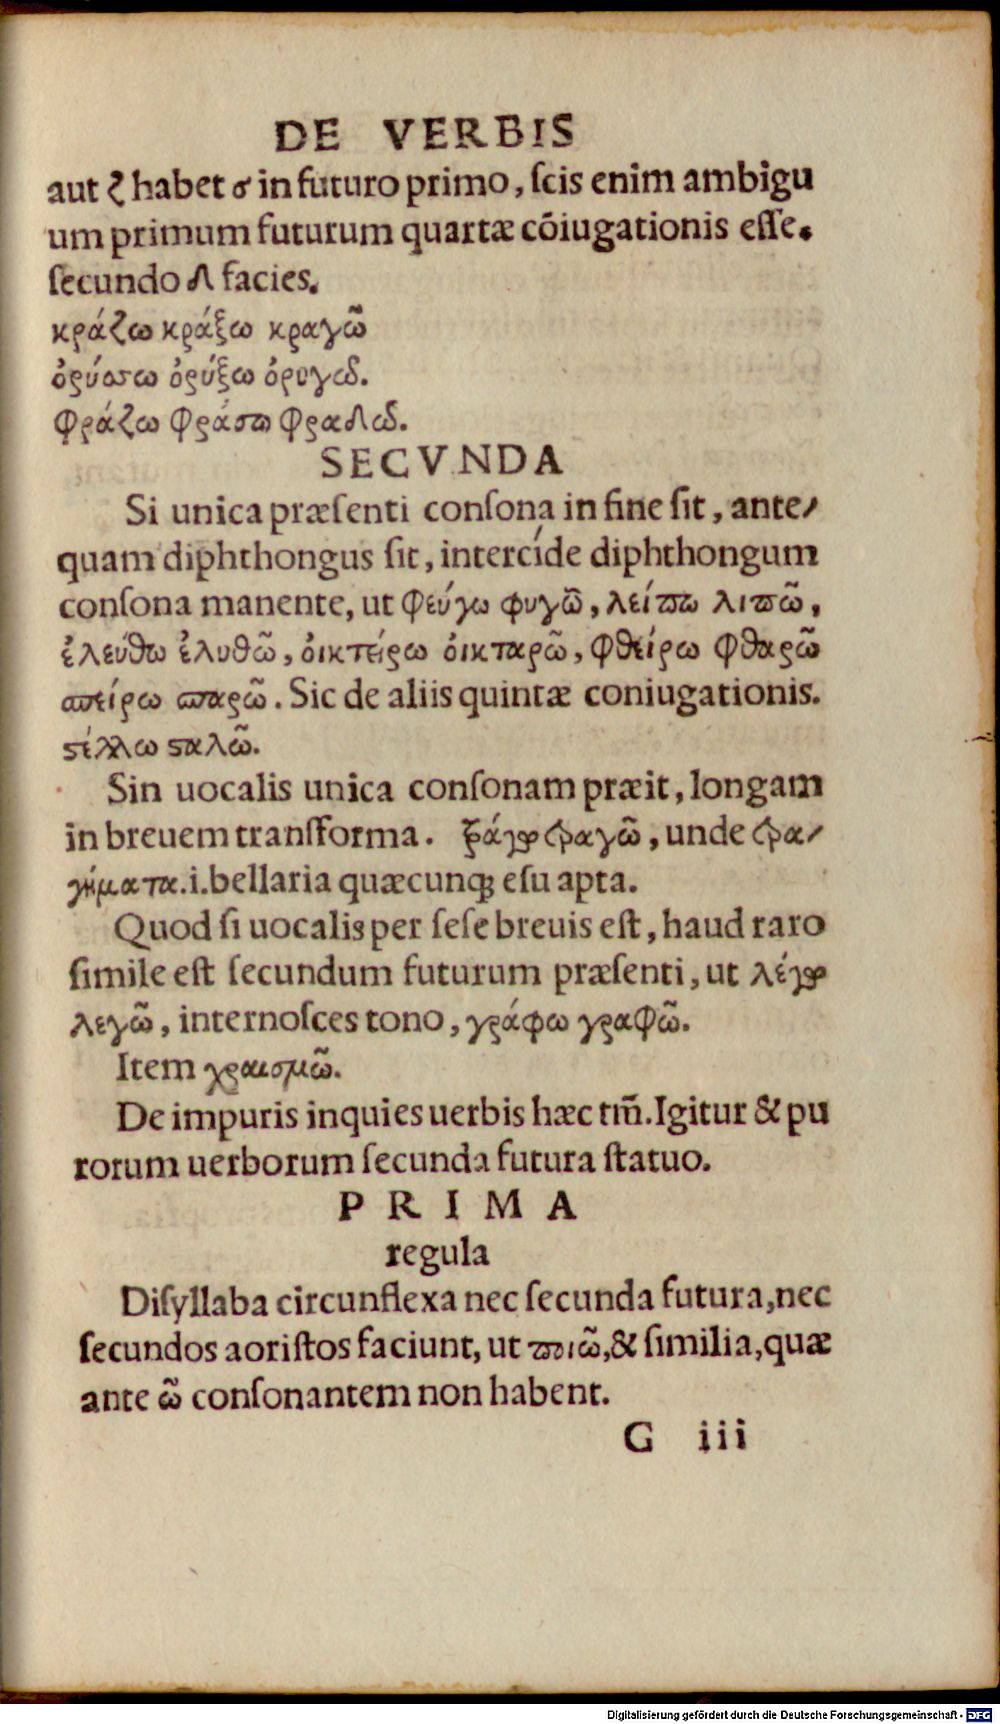 DE VERBIS
aut ζ habet σ in futuro primo, ſcis enim ambigu
um primum futurum quartæ cōiugationis eſſe.
ſecundo δ facies.
κράζω κράξω κραγῶ
ὀρύσσω ὀρύξω ὀρυγῶ.
φράζω φράσω φραδῶ.
SECVNDA
Si unica præſenti conſona in fine ſit, ante/
quam diphthongus ſit, intercíde diphthongum
conſona manente, ut φεύγω φυγῶ, λείπω λιπῶ,
ἐλεύθω ἐλυθῶ, ὀικτείρω ὀικταρῶ, φθείρω φθαρῶ
σπείρω σπαρῶ. Sic de aliis quintæ coniugationis.
ϛέλλω ϛαλῶ.
Sin uocalis unica conſonam præit, longam
in breuem transſforma. τράγω τραγῶ, unde τρα/
γήματα.i.bellaria quæcunqꝫ eſu apta.
Quod ſi uocalis per ſeſe breuis eſt, haud raro
ſimile eſt ſecundum futurum præſenti, ut λέγω
λεγῶ, internoſces tono, γράφω γραφῶ.
Item χραισμῶ.
De impuris inquies uerbis hæc tm̄. Igitur & pu
rorum uerborum ſecunda futura ſtatuo.
PRIMA
regula
Diſyllaba circunflexa nec ſecunda futura, nec
ſecundos aoriſtos faciunt, ut ποιῶ, & ſimilia, quæ
ante ῶ conſonantem non habent.
G iii
Digitalisierung gefördert durch die Deutsche Forschungsgemeinschaft - DFG